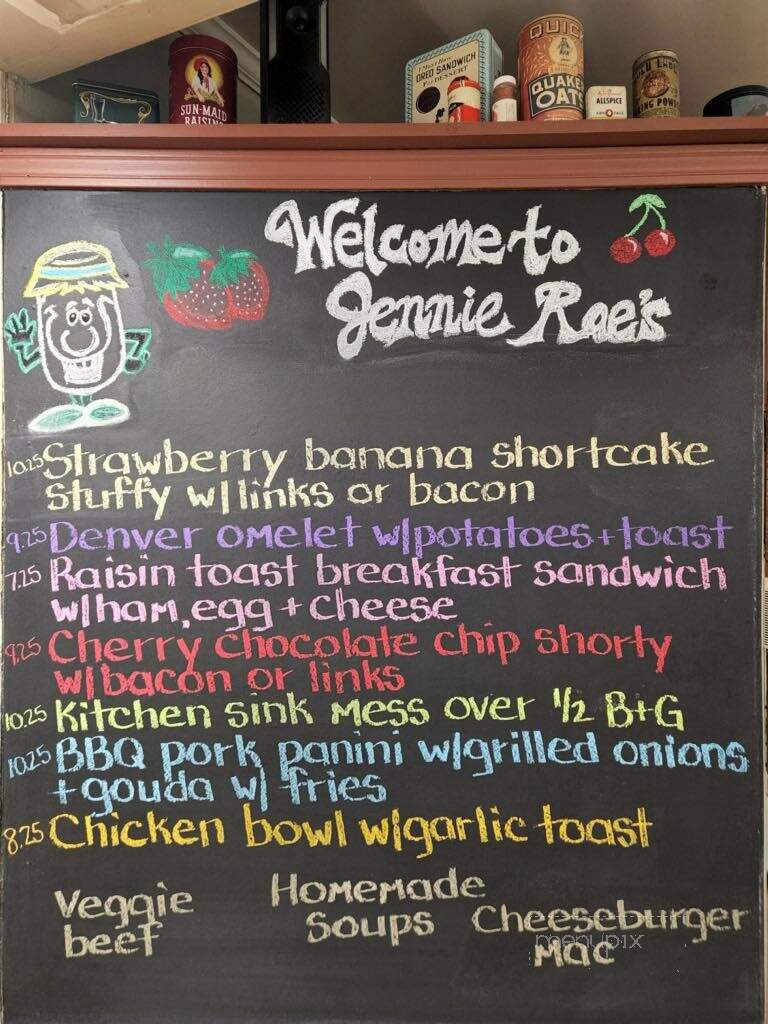 SUN-MAID
RAISINS
OREO SANDWICH
For DESSERT
QUICK
QUAKER
OATS
ALLSPICE
Welcome to
Jennie Rae's
10.25 Strawberry banana shortcake
stuffy w/links or bacon
9.25 Denver omelet w/potatoes + toast
7.25 Raisin toast breakfast sandwich
w/ham, egg + cheese
9.25 Cherry chocolate chip shorty
w/bacon or links
10.25 Kitchen sink mess over 1/2 B+G
10.25 BBQ pork panini w/grilled onions
+ gouda w/ fries
8.25 Chicken bowl w/garlic toast
Veggie
beef
Homemade
Soups
Cheeseburger
Mac
menupix